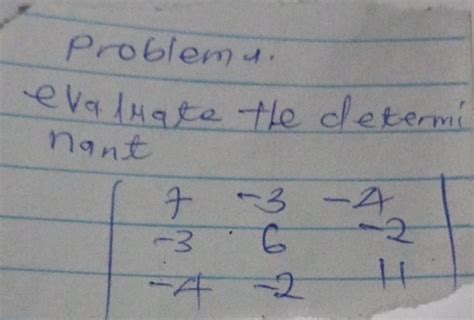 Problem 4.
evaluate the determi
nant
7 -3 -4
-3 6 -2
-4 -2 11